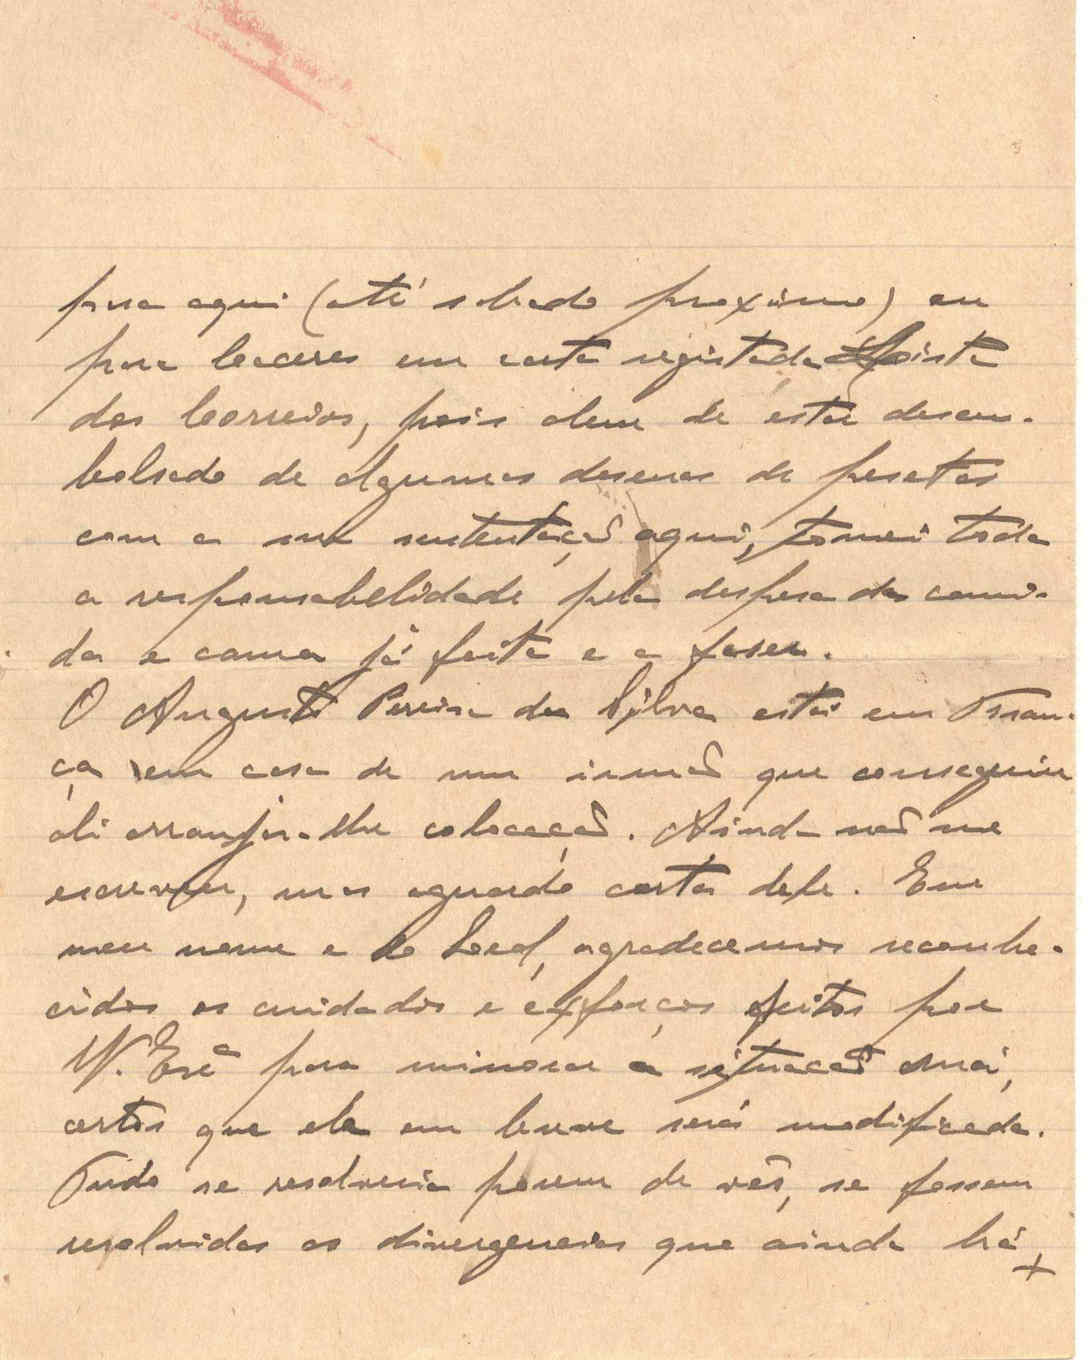 para aqui (até sabado proximo) ou
para Caceres em carta registada Lista
dos Correios, pois alem de estar desem-
bolsado de algumas desenas de pesetas
com a sua sustentação aqui, tomei toda
a responsabelidade pela despesa da comi-
da e cama já feita e a faser.
O Augusto Pereira da Silva está em Fran-
ça em casa de um irmão que conseguiu
ali arranjar-lhe colocação. Ainda não me
escreveu, mas aguardo carta dele. Em
meu nome e do Leal, agradecemos reconhe-
cidos os cuidados e esforços feitos por
V. Exª para minorar a situação má,
certos que ela em breve será modificada.
Tudo se resolveria porem de vês, se fossem
resolvidas as divergencias que ainda há,
+